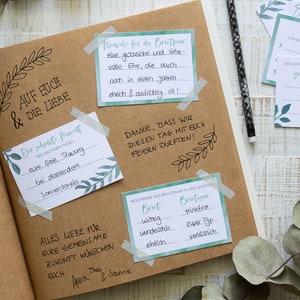 AUF EUCH
& DIE LIEBE
Wünsche für das Brautpaar
eine glückliche und liebe-
volle Ehe, die auch
noch in vielen Jahren
ehrlich & aufrichtig ist!
Der schönste Moment
eure freie Trauung
bei strahlendem
Sonnenschein
DANKE, DASS WIR
DIESEN TAG MIT EUCH
FEIERN DURFTEN!
BESCHREIBE DAS BRAUTPAAR IN DREI WORTEN
Braut
witzig
wunderschön
ehrlich
Bräutigam
trinkfest
super Typ
verlässlich
ALLES LIEBE FÜR
EURE GEMEINSAME
ZUKUNFT WÜNSCHEN
EUCH
Theo
& Sabine